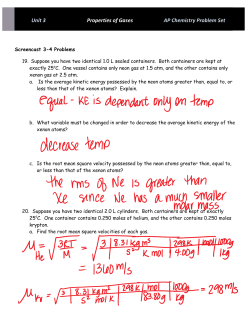 Unit 3 Properties of Gases AP Chemistry Problem Set
Screencast 3-4 Problems
19. Suppose you have two identical 1.0 L sealed containers. Both containers are kept at
exactly 25°C. One vessel contains only neon gas at 1.5 atm, and the other contains only
xenon gas at 2.5 atm.
a. Is the average kinetic energy possessed by the neon atoms greater than, equal to, or
less than that of the xenon atoms? Explain.
equal - KE is dependant only on temp
b. What variable must be changed in order to decrease the average kinetic energy of the
xenon atoms?
decrease temp
c. Is the root mean square velocity possessed by the neon atoms greater than, equal to,
or less than that of the xenon atoms?
the rms of Ne is greater than
Xe since Ne has a much smaller
molar mass.
20. Suppose you have two identical 2.0 L cylinders. Both containers are kept at exactly
25°C. One container contains 0.250 moles of helium, and the other contains 0.250 moles
krypton.
a. Find the root mean square velocities of each gas.
μ He = √3RT/M = √3 | 8.31 kg m² | 298 K | mol | 1000g / s² K mol | 4.00g | 1kg
= 1360 m/s
μ Kr = √3 | 8.31 kg m² | 298 K | mol | 1000g / s² mol K | 83.80g | kg = 298 m/s